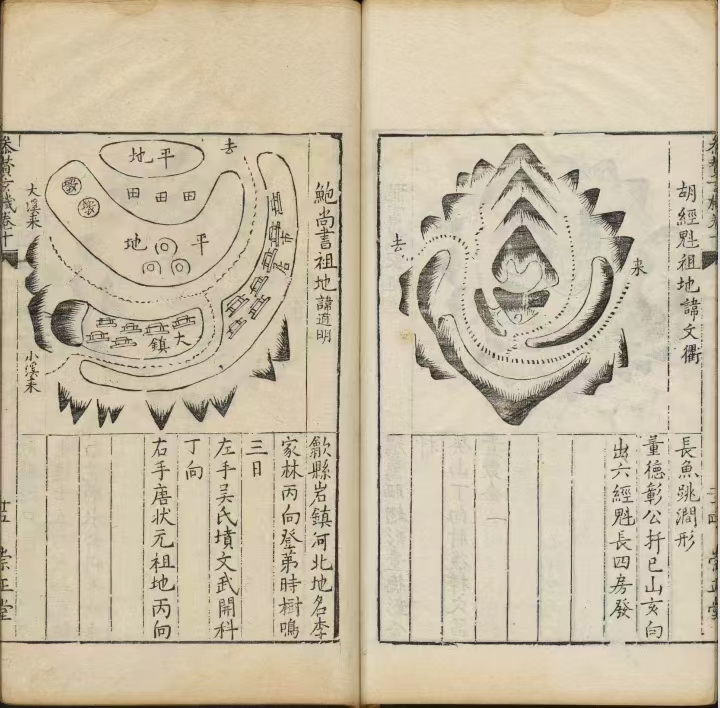 胡經魁祖地諱文衢
来
去
長魚跳澗形
董德彰公扦巳山亥向
出六經魁長四房發
崇正堂
鮑尚書祖地諱道明
去
平地
田田田
平地
市
大鎮
大溪来
小溪来
歙縣岩鎮河北地名李
家林丙向登第時樹鳴
三日
左手吳氏墳文武開科
丁向
右手唐状元祖地丙向
崇正堂